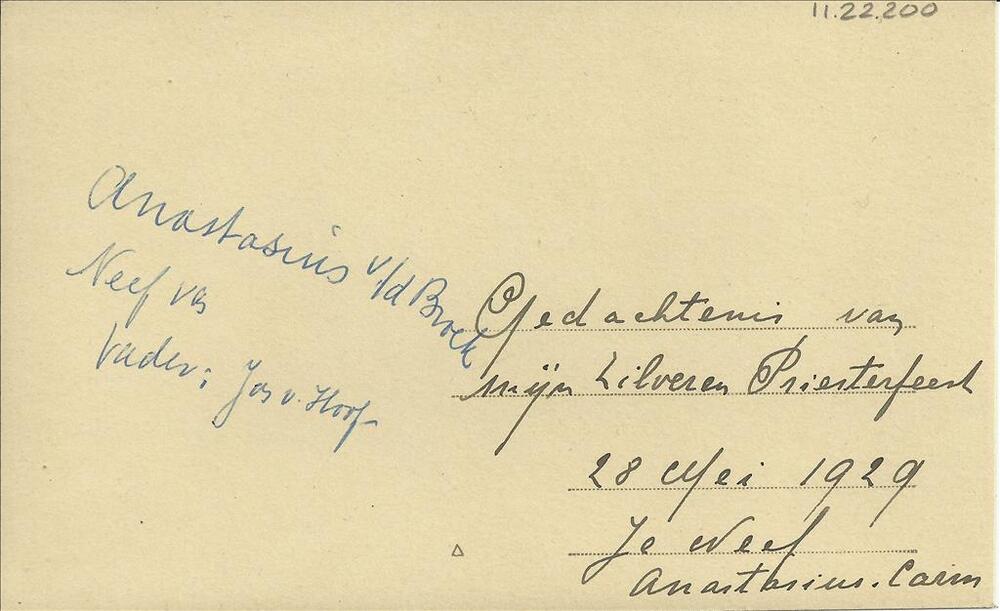 11.22.200
Anastasius v/d Broek
Neef van
Vader: Jos v. Hoof
Gedachtenis van
mijn Zilveren Priesterfeest
28 Mei 1929
Je Neef
Anastasius. Carm